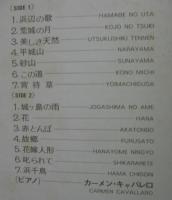 (SIDE 1)
1. 浜辺の歌 HAMABE NO UTA
2. 荒城の月 KOJO NO TSUKI
3. 美しき天然 UTSUKUSHIKI TENNEN
4. 平城山 NARAYAMA
5. 砂山 SUNAYAMA
6. この道 KONO MICHI
7. 宵待草 YOIMACHIGUSA
(SIDE 2)
1. 城ヶ島の雨 JOGASHIMA NO AME
2. 花 HANA
3. 赤とんぼ AKATONBO
4. 故郷 FURUSATO
5. 花嫁人形 HANAYOME NINGYO
6. 叱られて SHIKARARETE
7. 浜千鳥 HAMA CHIDORI
(ピアノ) カーメン・キャバレロ
CARMEN CAVALLARO